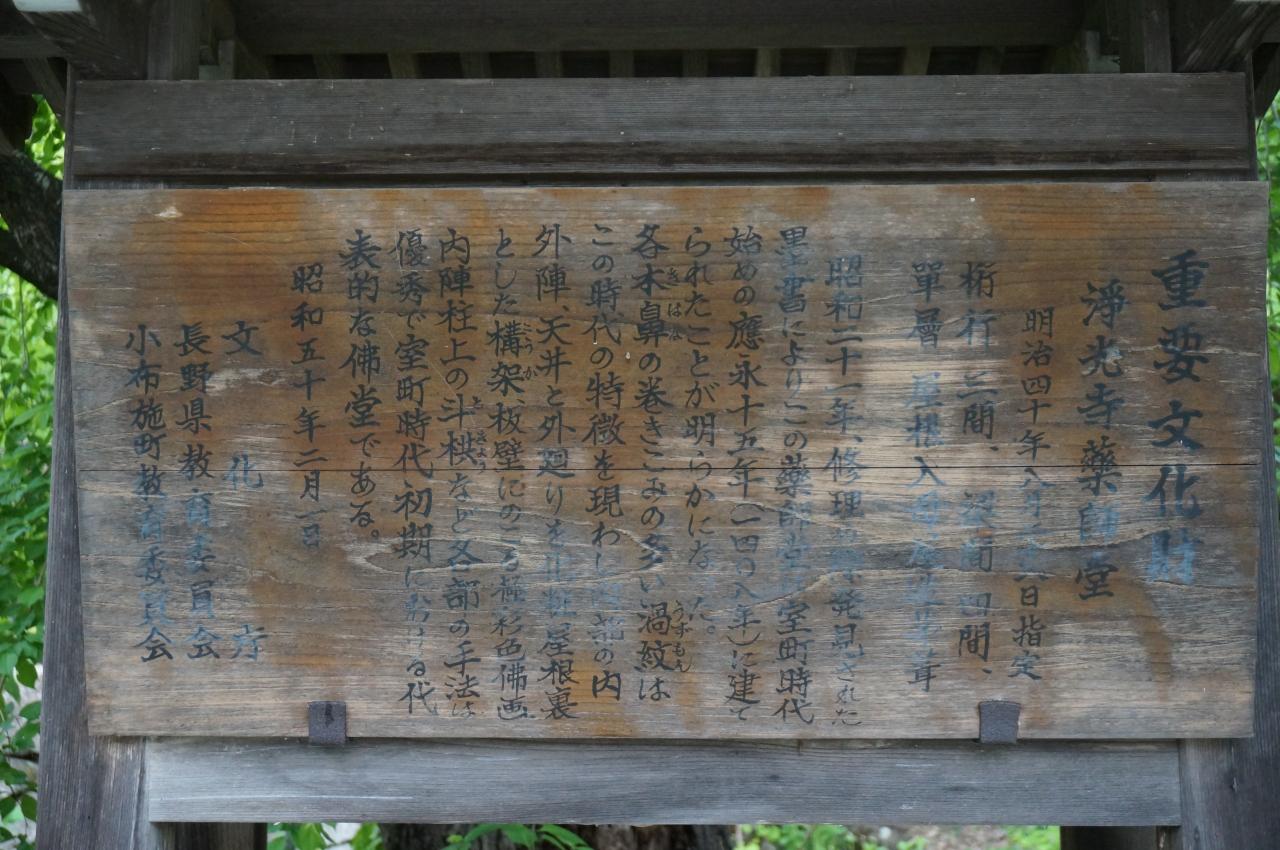 重要文化財
淨光寺藥師堂
明治四十年八月二十八日指定
桁行三間、梁間四間、
單層 屋根入母屋造茅葺
昭和二十一年、修理の際発見された
墨書によりこの藥師堂は室町時代
始めの應永十五年(一四〇八年)に建て
られたことが明らかになった。
各木鼻の巻きこみの多い渦紋は
きはな
うずもん
この時代の特徴を現わし の内
外陣、天井と外廻りを化粧屋根裏
とした構架、板壁にのこる極彩色佛画
こうか
内陣柱上の斗栱など各部の手法は
ときょう
優秀で室町時代初期における代
表的な佛堂である。
昭和五十年二月一日
文化庁
長野県教育委員会
小布施町教育委員会